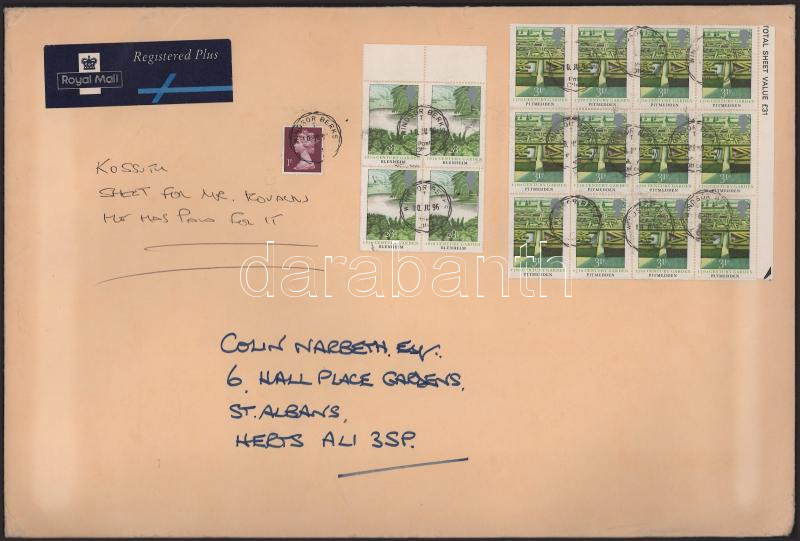 Royal Mail
Registered Plus
KOSSUTH
SHEET FOR MR. KOVALIN
HE HAS PAID FOR IT
WINDSOR BERKS
19th CENTURY GARDEN
BLENHEIM
17th CENTURY GARDEN
PITMEDDEN
TOTAL SHEET VALUE £31
darabanth
COLIN NARBETH, Esq.
6, HALL PLACE GARDENS,
ST. ALBANS,
HERTS AL1 3SP.